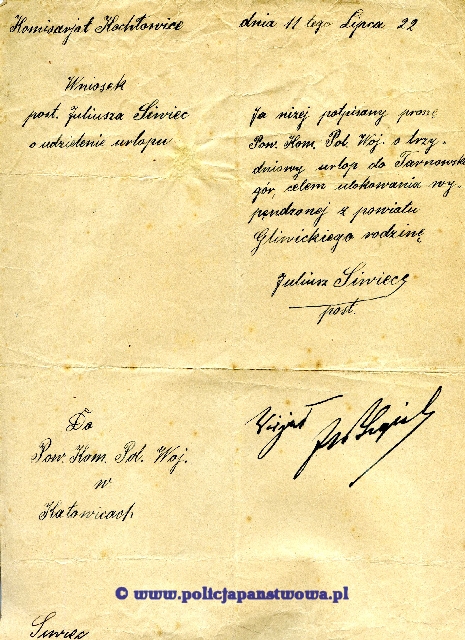 Komisarjat Kochłowice
dnia 11 tego Lipca 22
Wniosek
post. Juliusza Siwiec
o udzielenie urlopu
Ja niżej potpisany proszę
Pow. Kom. Pol. Woj. o trzy-
dniowy urlop do Tarnowskich
gór, celem ulokowania wy-
pędzonej z powiatu
Gliwickiego rodzinę
Juliusz Siwiec
post.
Do
Pow. Kom. Pol. Woj.
w
Katowicach
© www.policjapanstwowa.pl
Siwiec